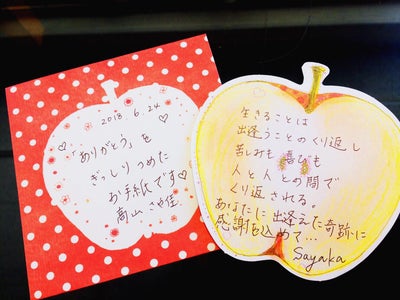 2018.6.24
「ありがとう」を
ぎっしりつめた
お手紙です♡
高山 さや佳
生きることは
出逢うことのくり返し
苦しみも 喜びも
人と人との間で
くり返される。
あなたに出逢えた奇跡に
感謝を込めて…
Sayaka